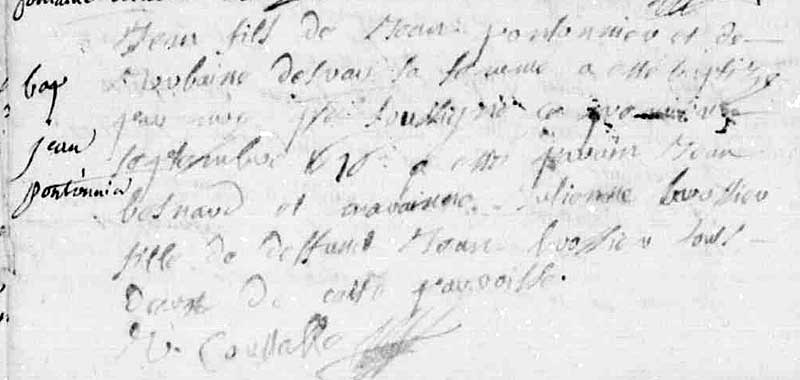 bap
jean
pontonnier
Jean fils de Jean pontonnier et de
Urbaine desvau sa femme a esté baptizé
par moy soussigné ce
septembre 1676 a esté parain Jean
besnard et maraine Julienne brossier
fille de deffunt Jean brossier tous
deux de cette parroisse.